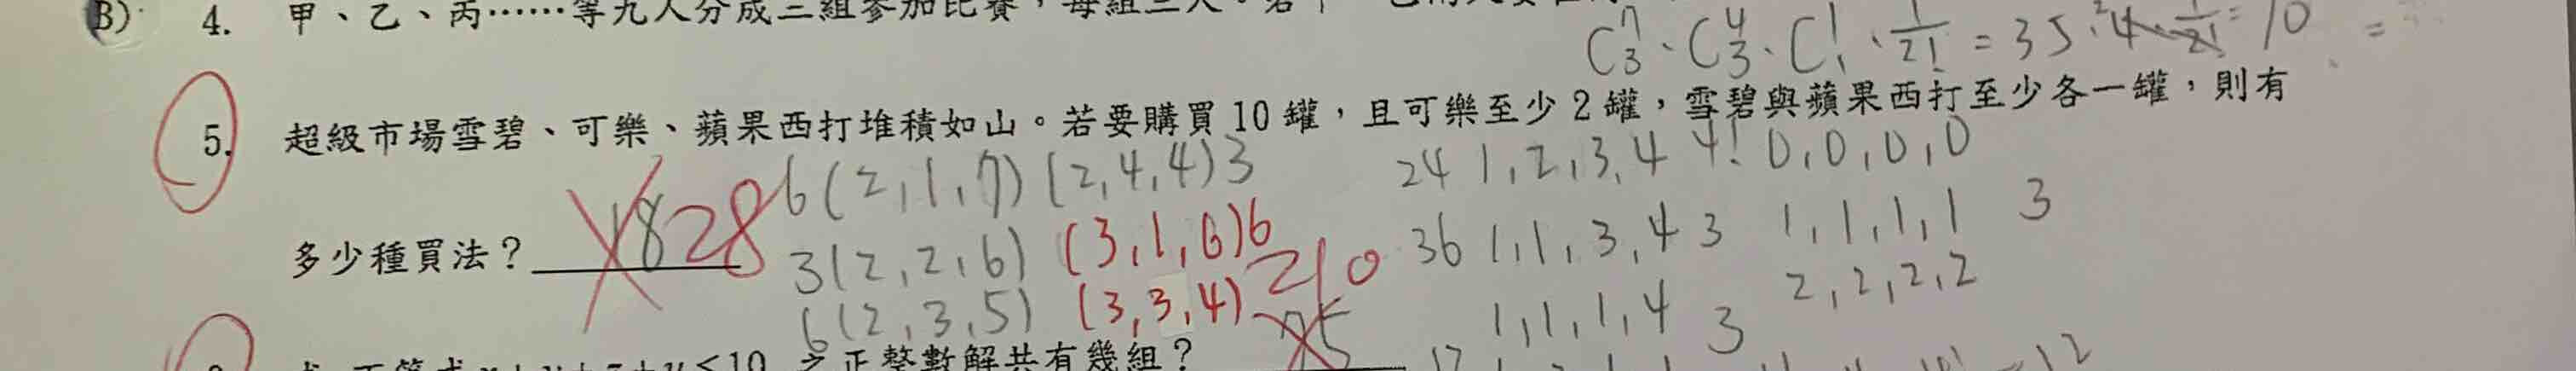 B) 4. 甲、乙、丙……等九人分成三組參加比賽，每組三人。若
C⁷₃·C⁴₃·C¹₁·1/2! = 35·4·1/2! = 70 =
5. 超級市場雪碧、可樂、蘋果西打堆積如山。若要購買 10 罐，且可樂至少 2 罐，雪碧與蘋果西打至少各一罐，則有
6(2,1,7) (2,4,4)3 24 1,2,3,4 4! 0,0,0,0
多少種買法？ 18 28 3(2,2,6) (3,1,6)6 210 36 1,1,3,4 3 1,1,1,1 3
6(2,3,5) (3,3,4) 75 1,1,1,4 3 2,2,2,2
≤10 之正整數解共有幾組？